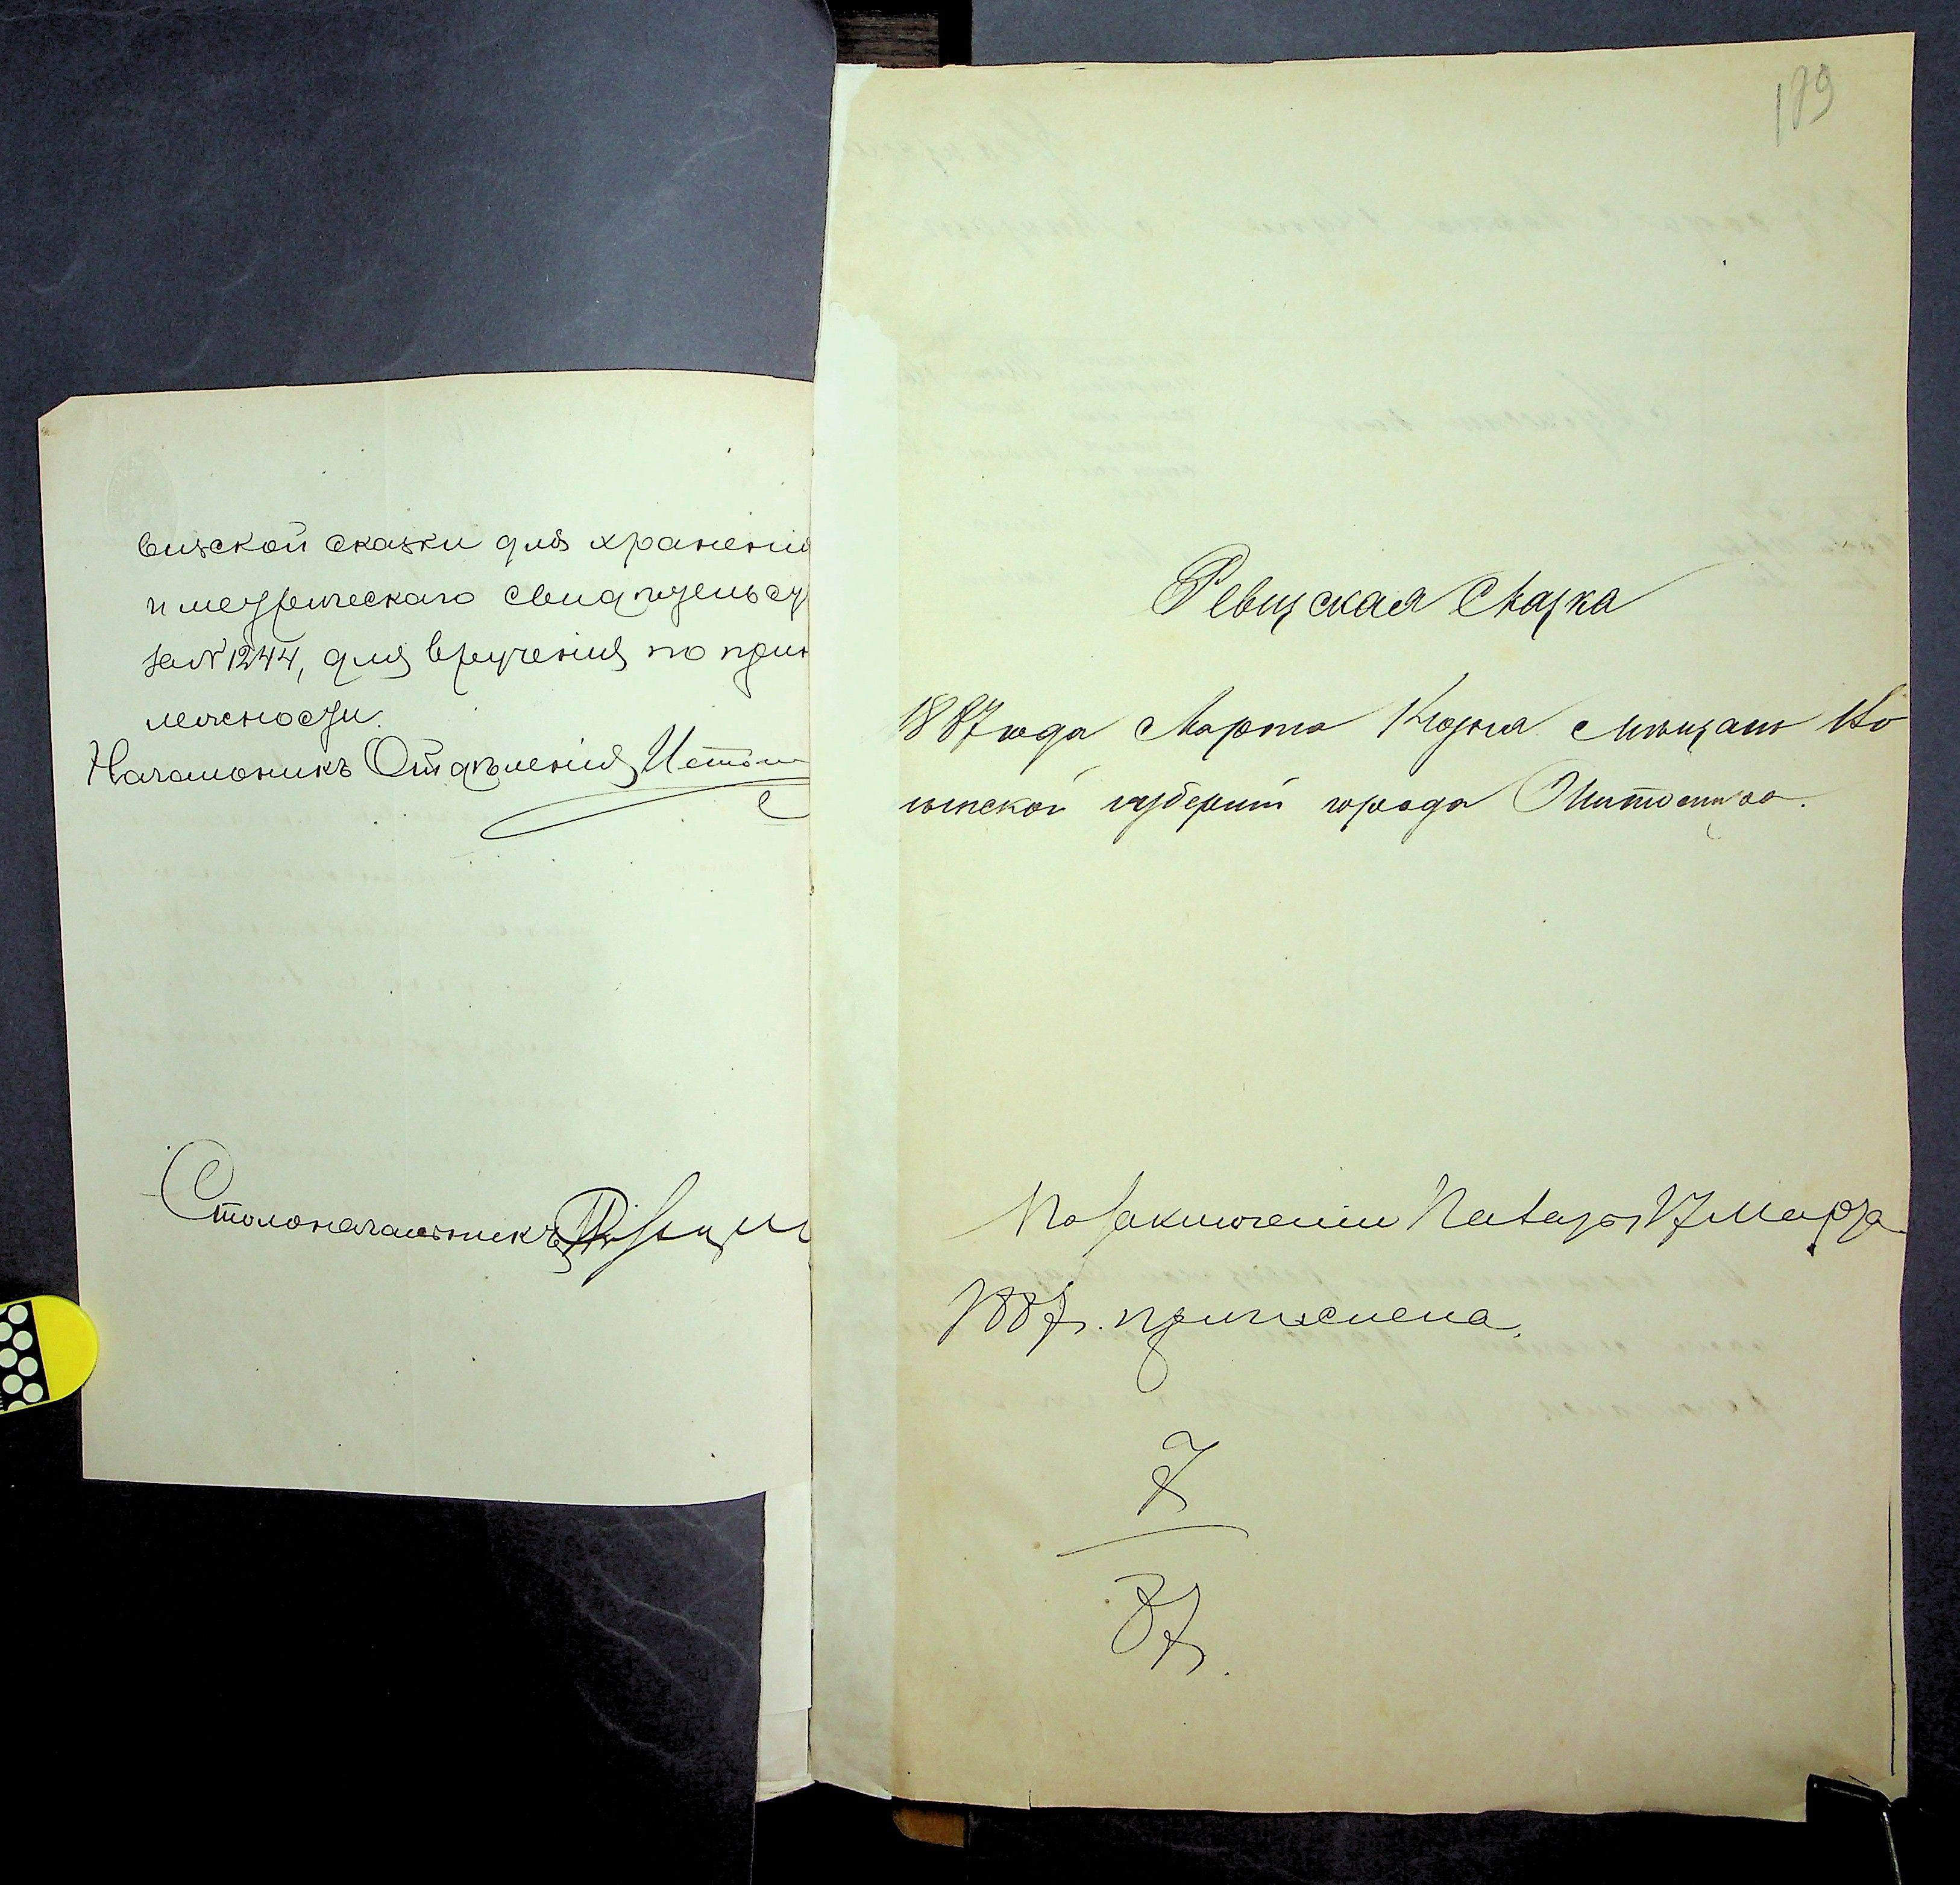 визской сказки для хранения
и метрическаго свидѣтельст
за № 1244, для врученія по прин
лежности.
Начальникъ Отдѣленія
Столоначальникъ
179
Ревизская Сказка
1887 года Марта дня мѣщанъ Во
лынской губерніи города Житомира.
По заключенію Палаты 17 Марта
1887 г. приписана.
7
87